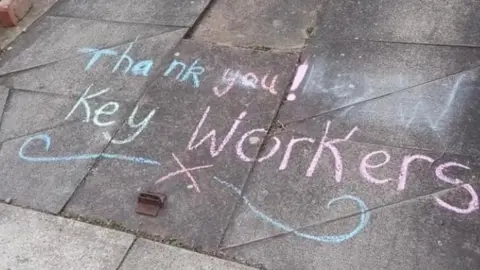 Thank you!
Key
Workers
x